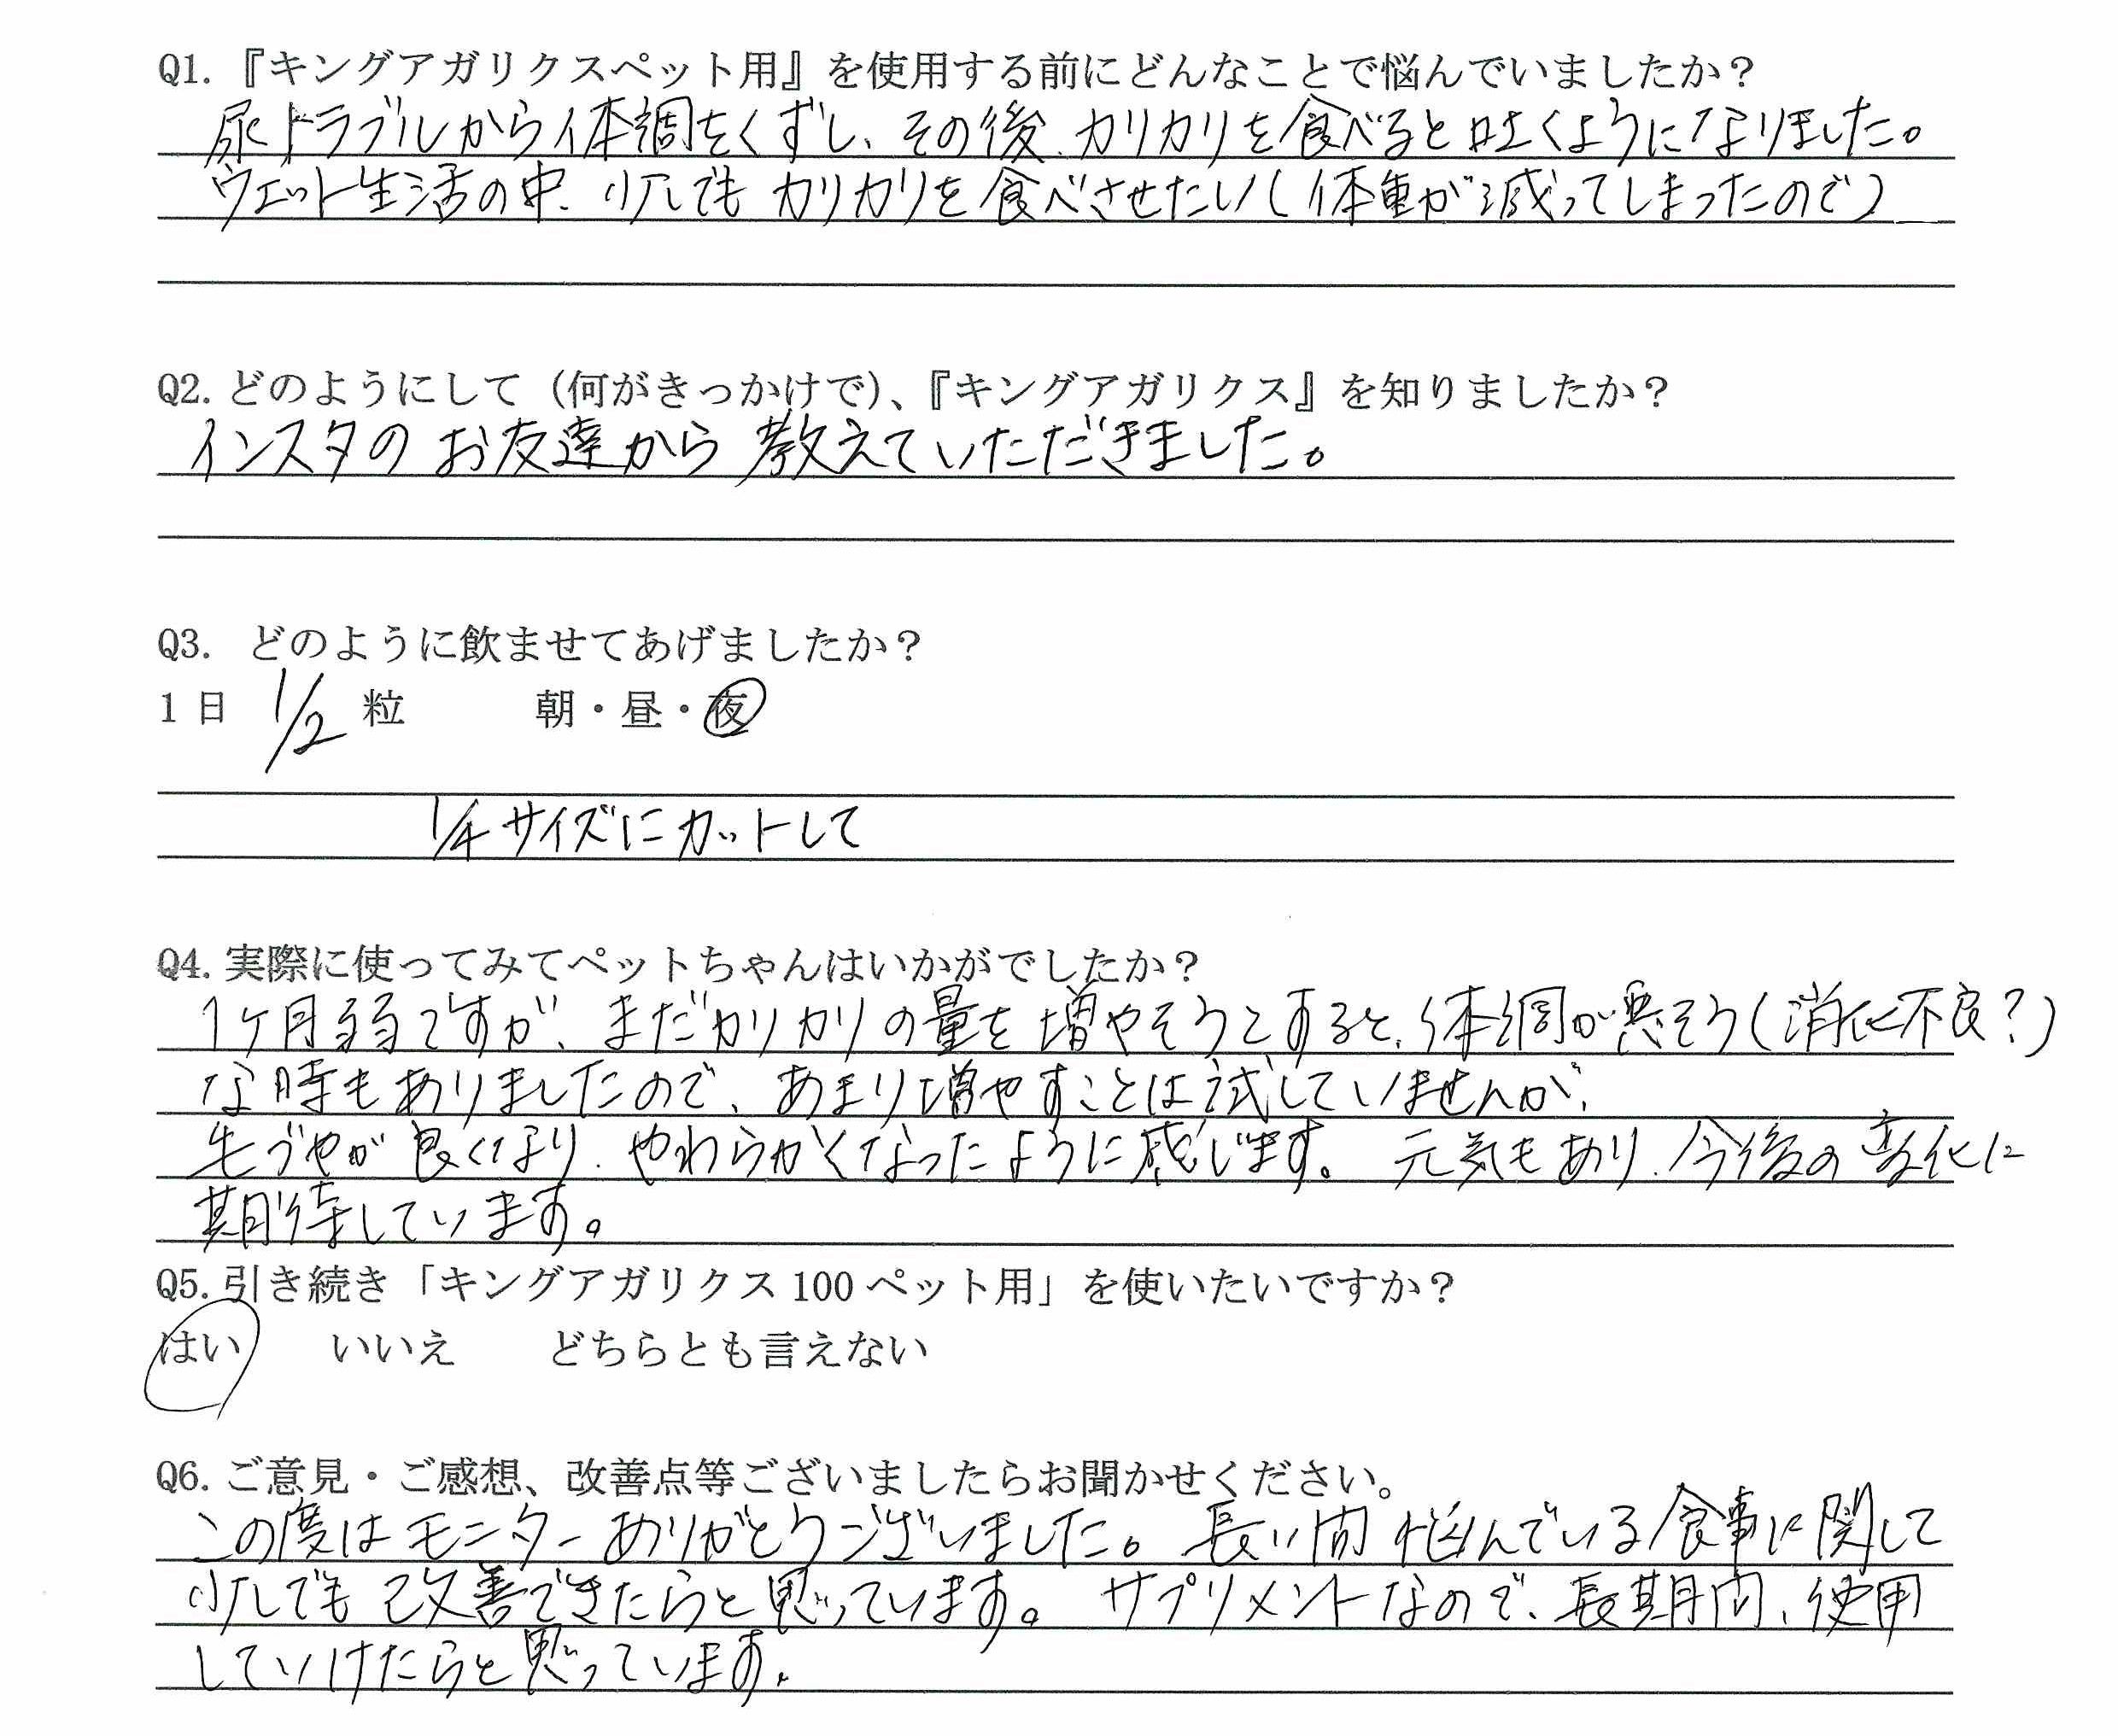 Q1.『キングアガリクスペット用』を使用する前にどんなことで悩んでいましたか？
尿トラブルから体調をくずし、その後、カリカリを食べると吐くようになりました。
ウェット生活の中、少しでもカリカリを食べさせたい（体重が減ってしまったので）
Q2.どのようにして（何がきっかけで）、『キングアガリクス』を知りましたか？
インスタのお友達から教えていただきました。
Q3. どのように飲ませてあげましたか？
1日 1/2 粒 朝・昼・夜
1/4サイズにカットして
Q4.実際に使ってみてペットちゃんはいかがでしたか？
1ヶ月弱ですが、まだカリカリの量を増やそうとすると、体調が悪そう（消化不良？）
な時もありましたので、あまり増やすことは試していませんが、
毛づやが良くなり、やわらかくなったように感じます。元気もあり、今後の変化に
期待しています。
Q5.引き続き「キングアガリクス100ペット用」を使いたいですか？
はい いいえ どちらとも言えない
Q6.ご意見・ご感想、改善点等ございましたらお聞かせください。
この度はモニターありがとうございました。長い間悩んでいる食事に関して
少しでも改善できたらと思っています。サプリメントなので、長期間、使用
していけたらと思っています。